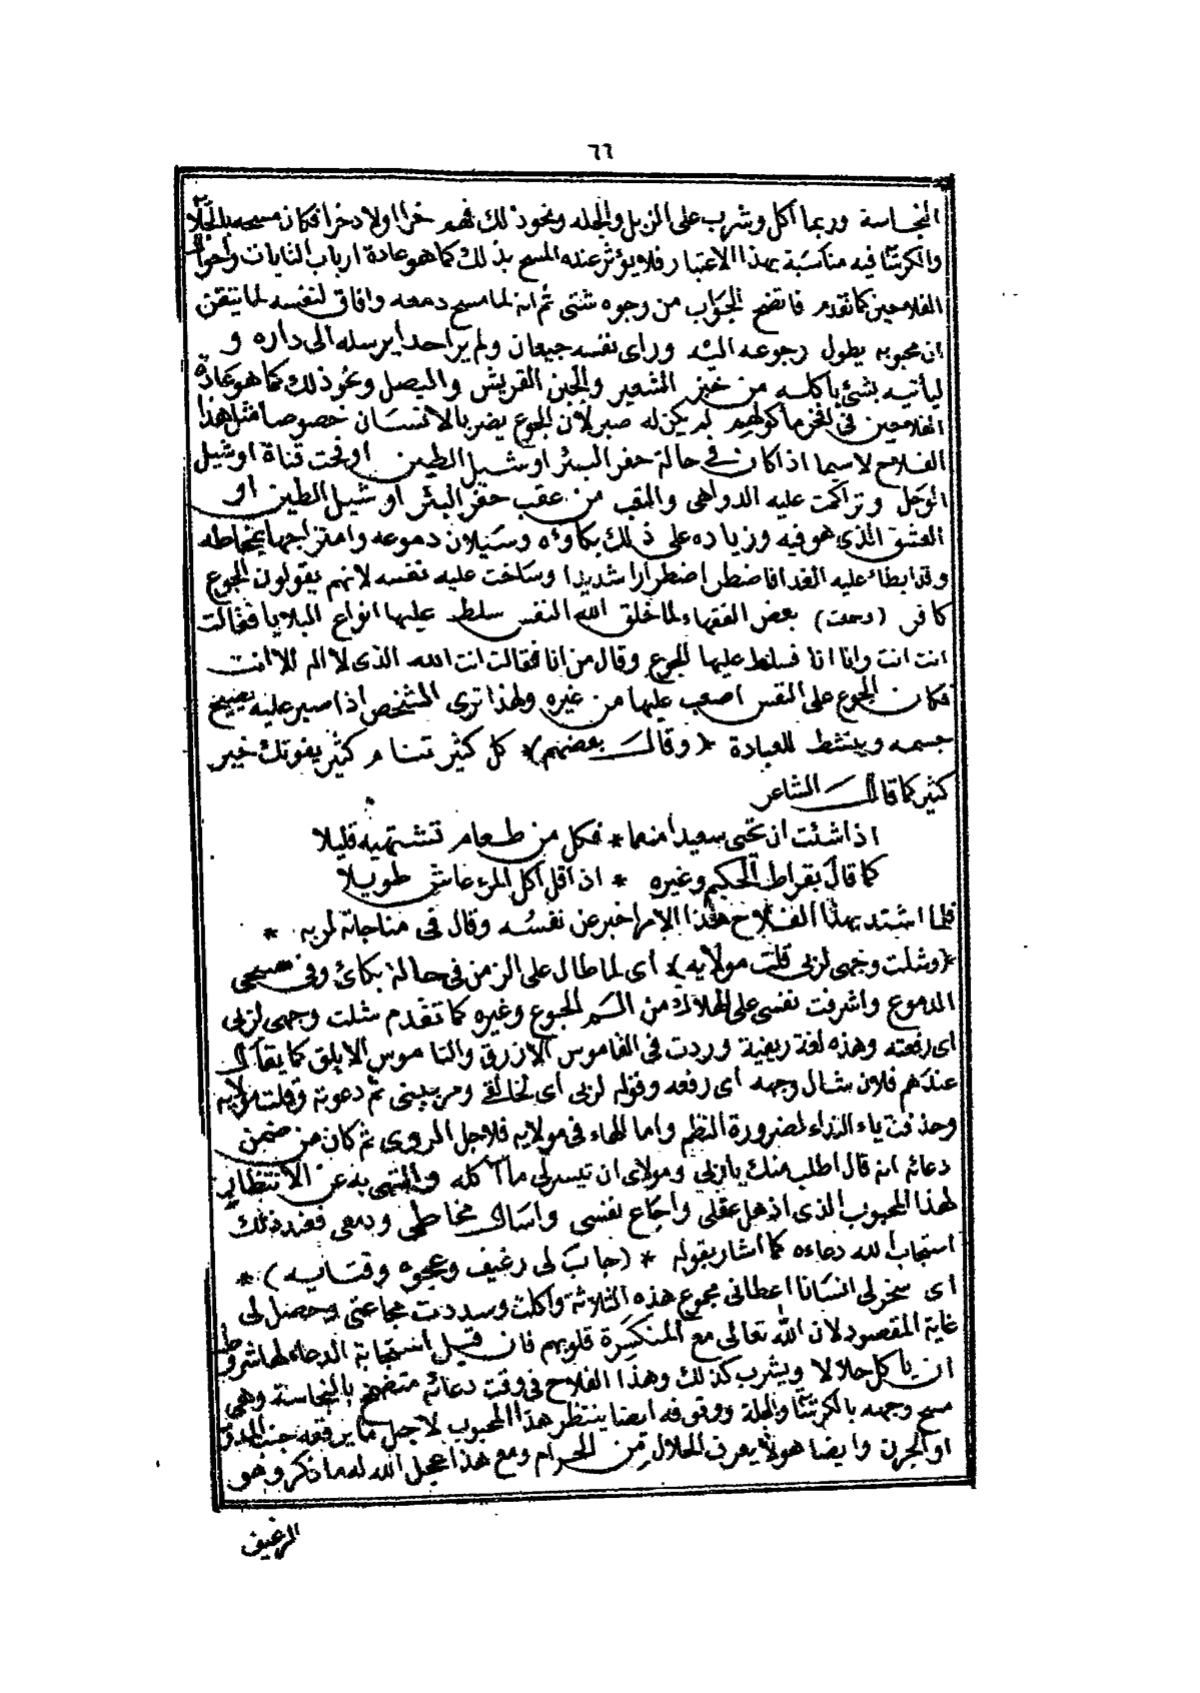 ٦٦
النجاسة وربما اكل وشرب على الزبل والجله ونحوذلك فهم خرا اولاد خرا فكان مسحه بالجلا
والكرشتا فيه مناسبة بهذا الاعتبار فلا يؤثر عنده المسح بذلك كما هو عادة ارباب النايات واحوال
الفلاحين كما تقدم فاتضح الجواب من وجوه شتى ثم انه لما مسح دمعه وافاق لنفسه لما تيقن
ان محبوبه يطول رجوعه اليه وراى نفسه جيعان ولم ير احدا يرسله الى داره و
ليأتيه بشئ ياكله من خبز الشعير والجبن القريش والبصل ونحوذلك كما هو عادة
الفلاحين فى الفخر ماكولهم لم يكن له صبر لان الجوع يضر بالانسان خصوصا مثل هذا
الفلاح لاسيما اذا كان فى حالة حفر البئر او شيل الطين او فحت قناة او شيل
الوحل وتراكمت عليه الدواهى والتعب من عقب حفر البئر او شيل الطين او
العشق الذى هو فيه وزياده على ذلك بكاؤه وسيلان دموعه وامتزاجها بمخاطه
وقد ابطاء عليه الغدا فاضطر اضطرارا شديدا وساخت عليه نفسه لانهم يقولون الجوع
كافر (وحكت) بعض الفقهاء لما خلق الله النفس سلط عليها انواع البلايا فقالت
انت انت وانا انا فسلط عليها الجوع وقال من انا فقالت انت الله الذى لا اله الا انت
فكان الجوع على النفس اصعب عليها من غيره ولهذا ترى الشخص اذا صبر عليه يصح
جسمه وينشط للعبادة * (وقال بعضهم) * كل كثير تنام كثير يفوتك خير
كثير كما قال الشاعر
اذا شئت ان تحيى سعيدا منعما * فكل من طعام تشتهيه قليلا
كما قال بقراط الحكيم وغيره * اذا قل اكل المرء عاش طويلا
فلما اشتد بهذا الفلاح هذا الامر اخبر عن نفسه وقال فى مناجاته لربه *
*(وشلت وجهى لربى قلت مولايه)* اى لما طال على الزمن فى حالة بكائ وفى مسحى
الدموع واشرفت نفسى على الهلاك من الم الجوع وغيره كما تقدم شلت وجهى لربى
اى رفعته وهذه لغة ريفية وردت فى القاموس الازرق والناموس الابلق كما يقال
عندهم فلان شال وجهه اى رفعه وقوله لربى اى لخالقى ومربينى ثم دعوته وقلت مولايه
وحذفت ياء النداء لضرورة النظم واما الهاء فى مولايه فلاجل الروى ثم كان من ضمن
دعائه انه قال اطلب منك ياربى ومولاى ان تيسرلى ما آكله والتهى به عن الانتظار
لهذا المحبوب الذى اذهل عقلى واجاع نفسى واسال مخاطى ودمعى فعند ذلك
استجاب الله دعاءه كما اشار بقوله * (جاب لى رغيف وعجوه وقتايه) *
اى سخرلى انسانا اعطانى مجموع هذه الثلاثة واكلت وسددت مجاعتى وحصل لى
غاية المقصود لان الله تعالى مع المنكسرة قلوبهم فان قيل استجابة الدعاء لها شروط
ان ياكل حلالا ويشرب كذلك وهذا الفلاح فى وقت دعائه متضمخ بالنجاسة وهى
مسح وجهه بالكرشتا والجلة ووقوفه ايضا ينتظر هذا المحبوب لاجل ما يرقعه جنب المدود
او الجرن وايضا هو لا يعرف الحلال من الحرام ومع هذا عجل الله له ما ذكر وهو
الرغيف